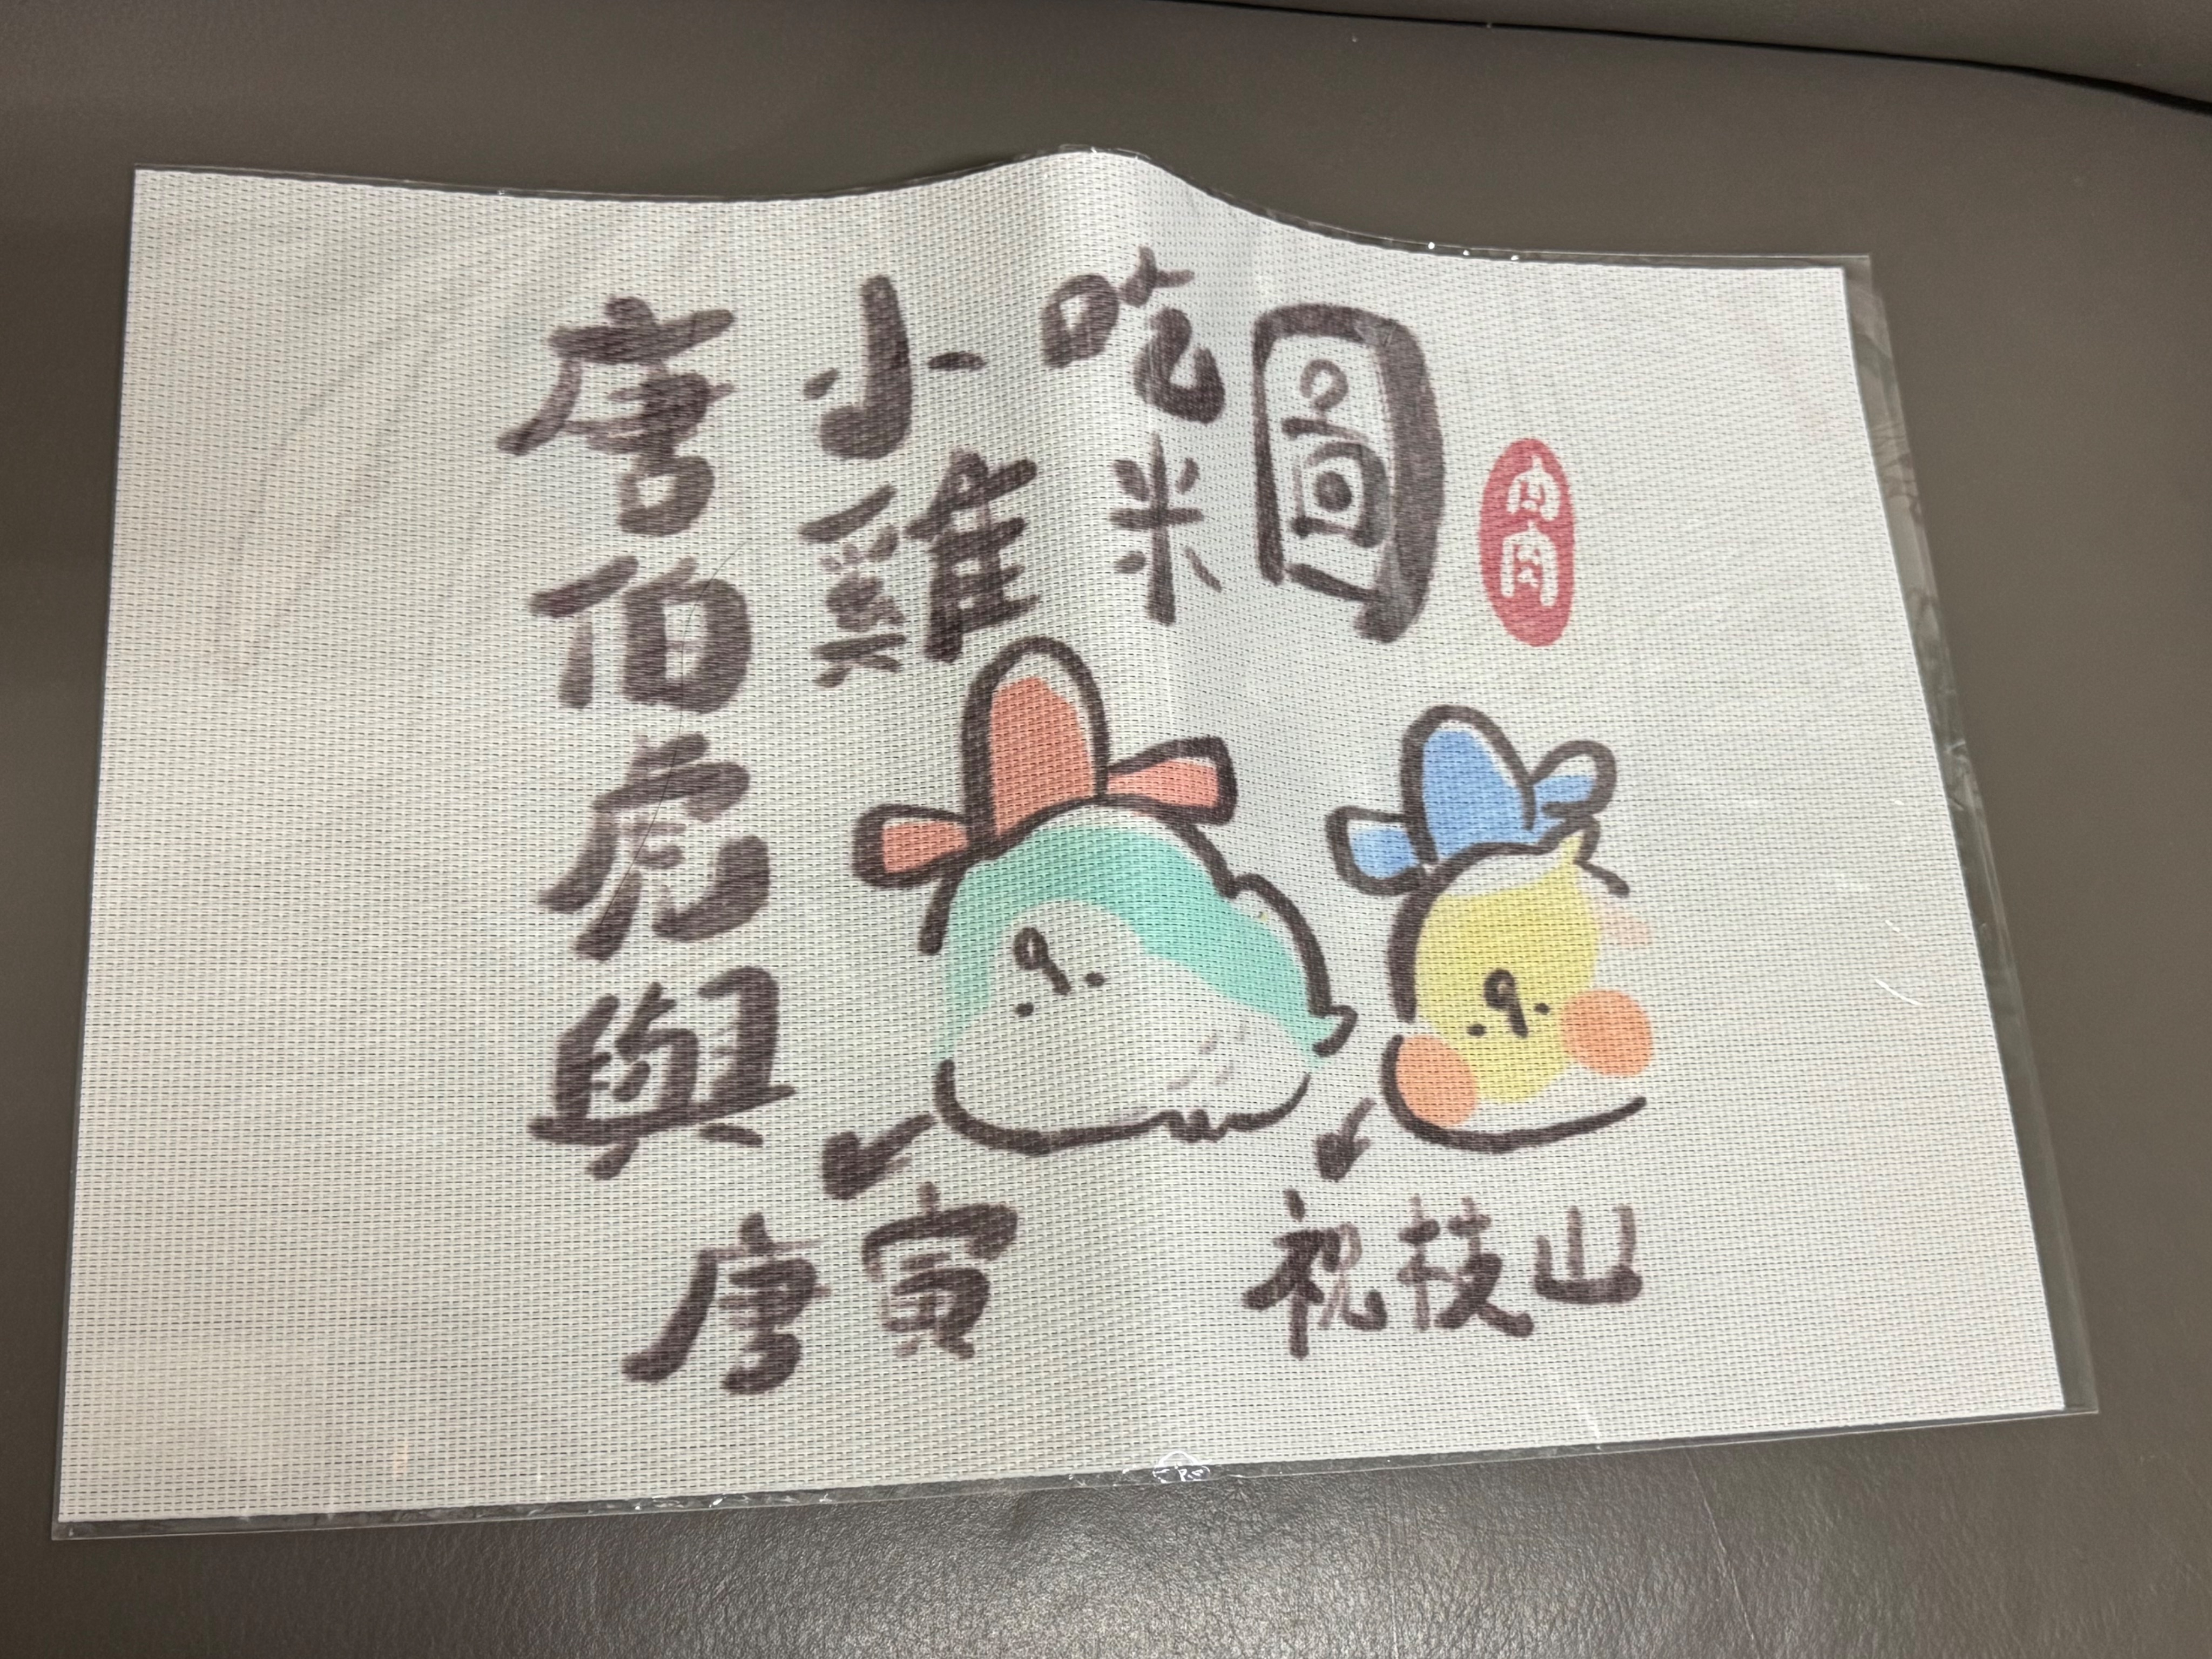 唐伯虎與
小雞
吃米
圖
唐寅
祝枝山